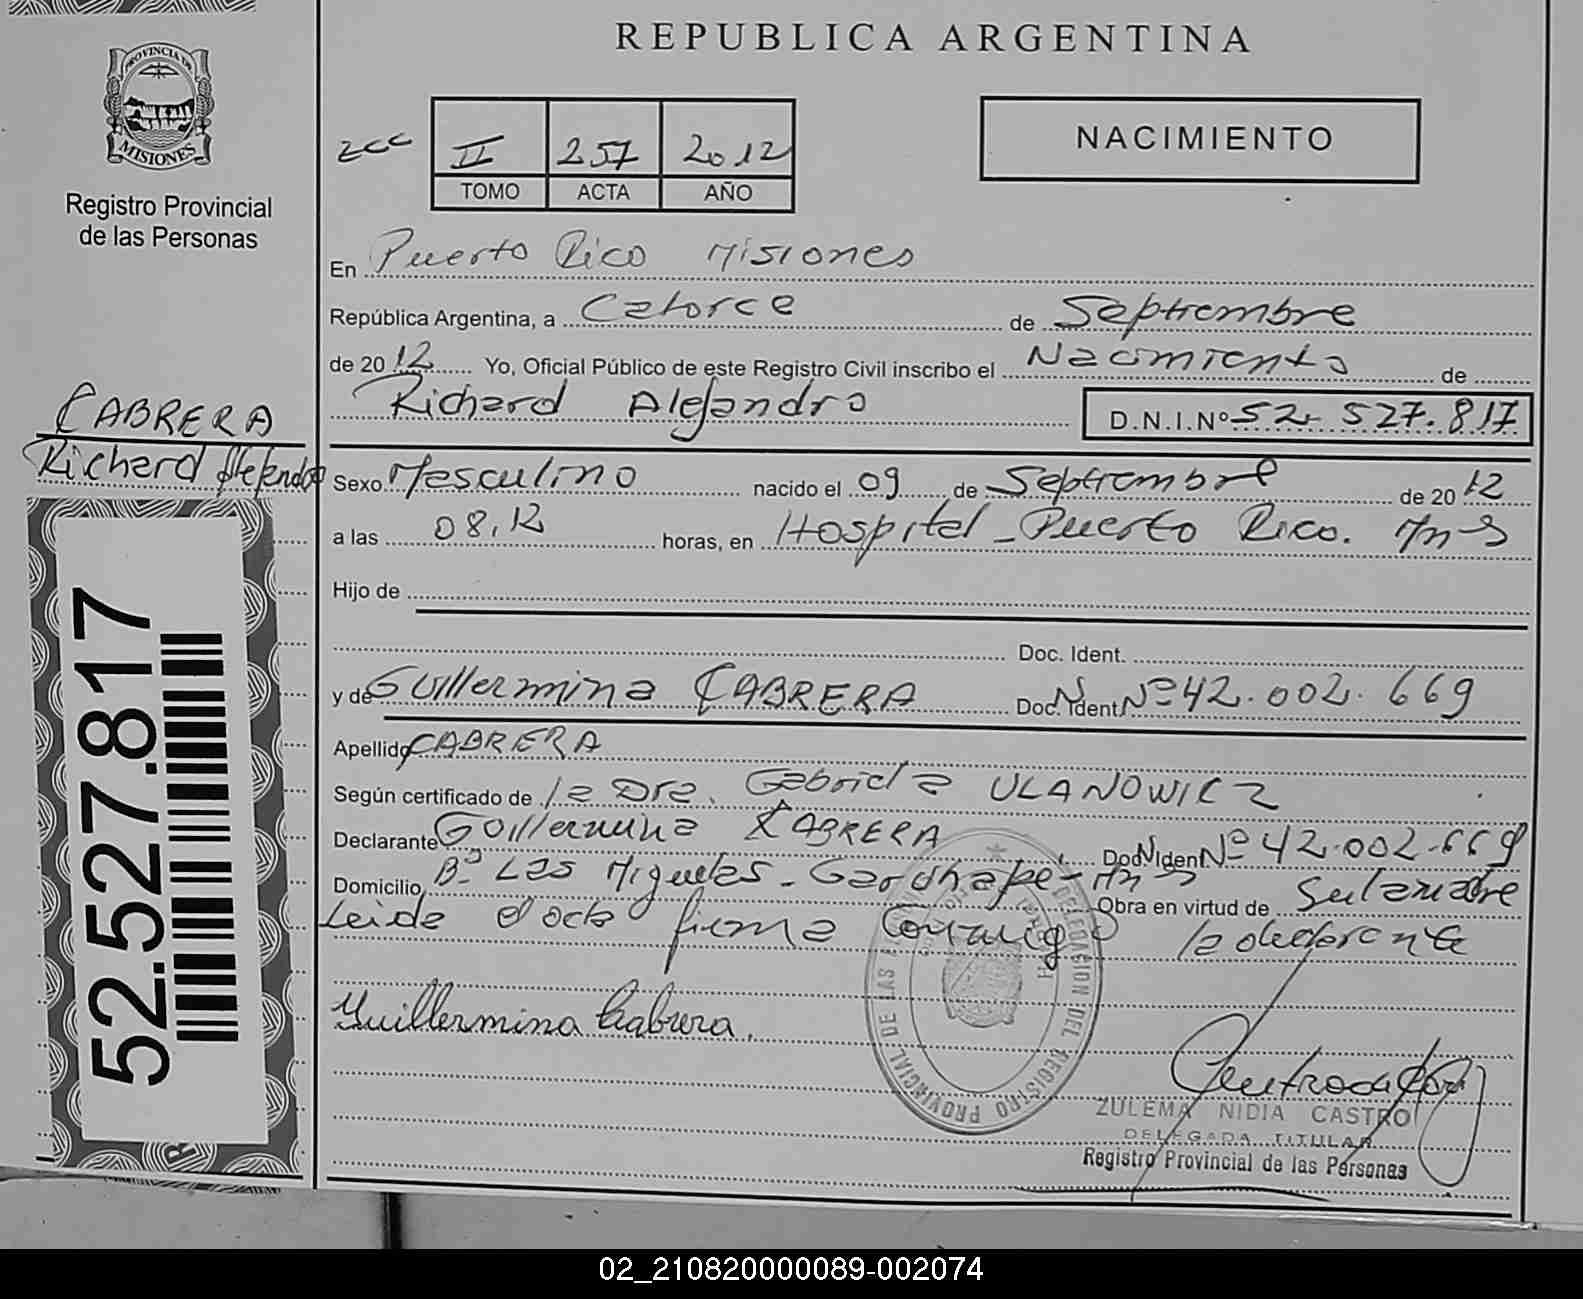 REPUBLICA ARGENTINA
PROVINCIA DE
MISIONES
Registro Provincial
de las Personas
II 257 2012
TOMO ACTA AÑO
NACIMIENTO
En Puerto Rico Misiones
República Argentina, a Catorce de Septiembre
de 2012 Yo, Oficial Público de este Registro Civil inscribo el Nacimiento de
Richard Alejandro D.N.I.Nº 52.527.817
CABRERA
Richard Alejandro
Sexo Masculino nacido el 09 de Septiembre de 2012
a las 08,12 horas, en Hospital - Puerto Rico. Mnes
Hijo de
Doc. Ident.
y de Guillermina CABRERA Doc. Ident. Nº 42.002.669
Apellido CABRERA
Según certificado de la Dra. Gabriela ULANOWICZ
Declarante Guillermina CABRERA Doc. Ident. Nº 42.002.669
Domicilio Bº Las Miguelas - Garuhapé - Mnes Obra en virtud de Ser la madre
Leida el acta firma Conmigo la declarante
Guillermina Cabrera.
DELEGACION DEL REGISTRO PROVINCIAL DE LAS
ZULEMA NIDIA CASTRO
DELEGADA TITULAR
Registro Provincial de las Personas
52.527.817
02_210820000089-002074